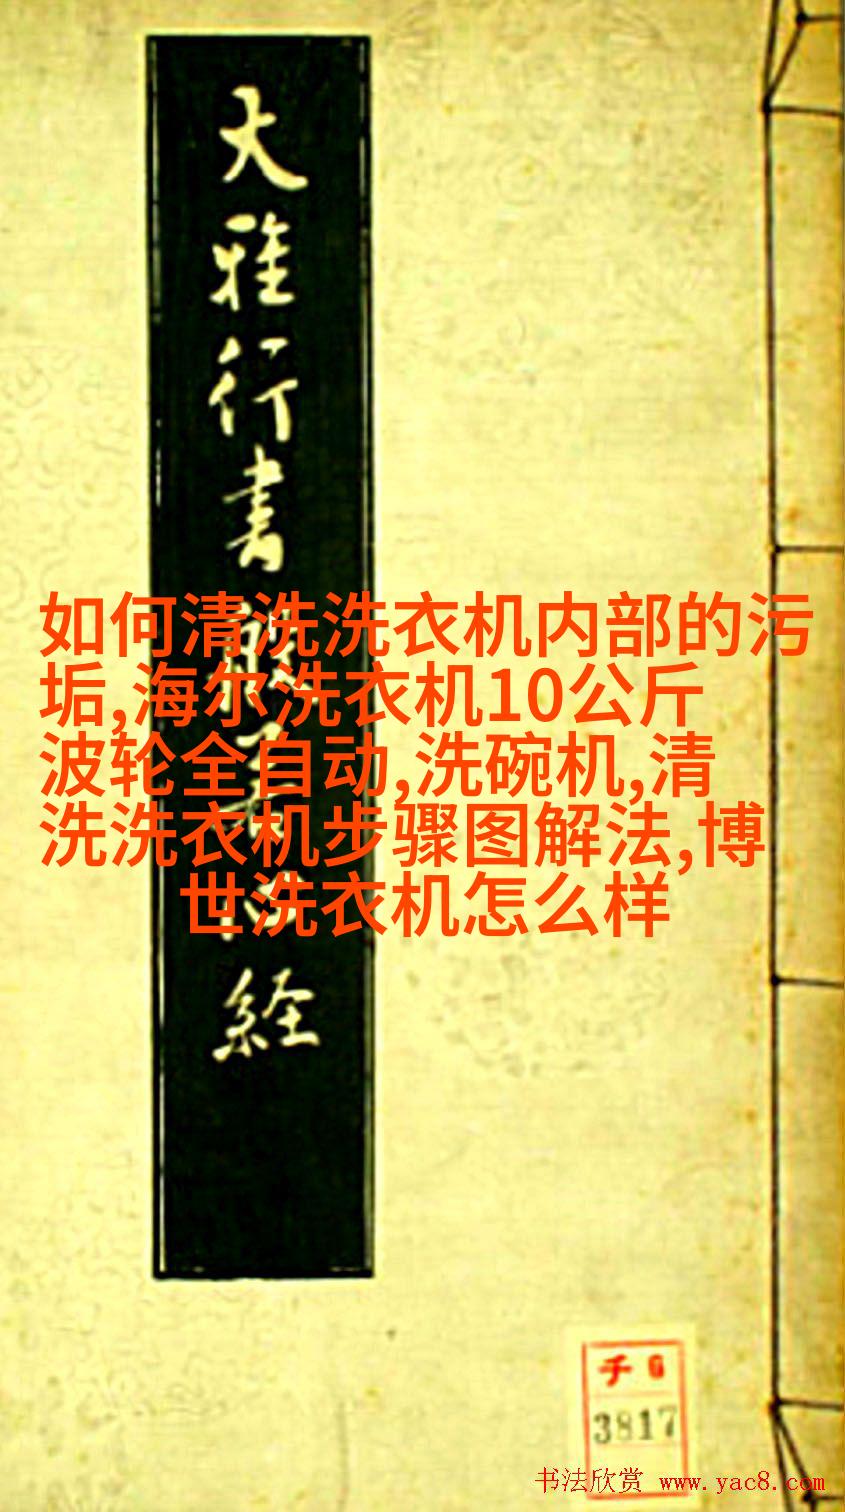 大雅行書般若心経
如何清洗洗衣机内部的污
垢,海尔洗衣机10公斤
波轮全自动,洗碗机,清
洗洗衣机步骤图解法,博
世洗衣机怎么样
千 6
3817
书法欣赏 www.yac8.com